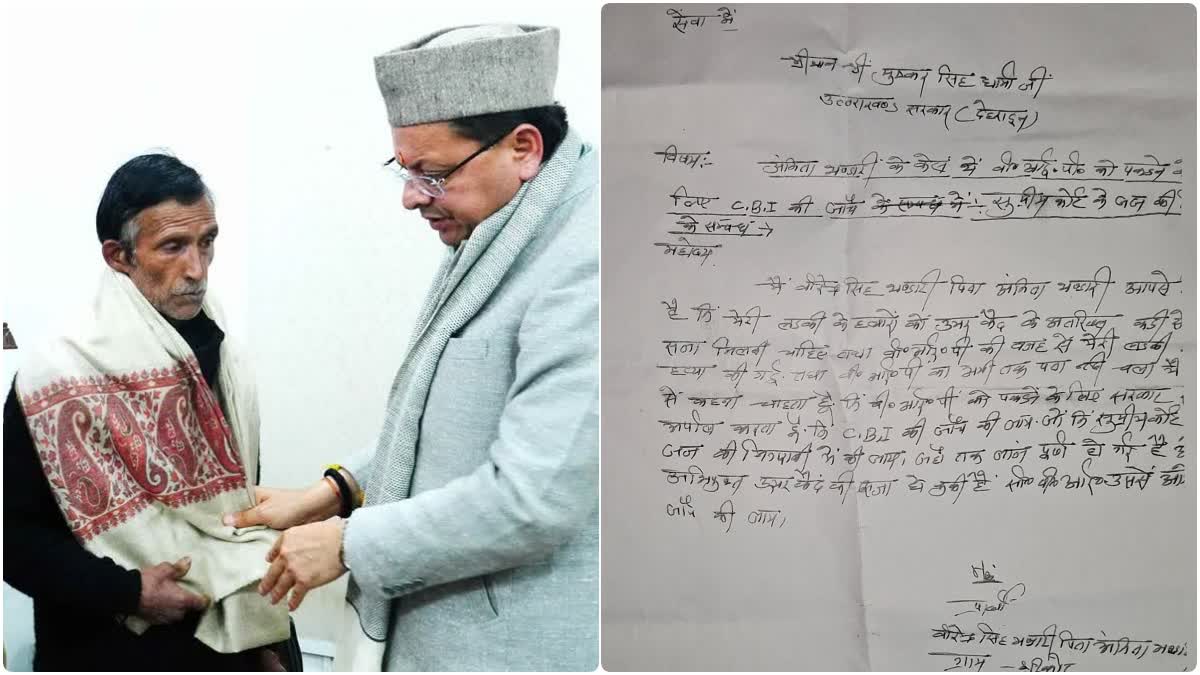 सेवा में
श्रीमान श्री पुष्कर सिंह धामी जी
उत्तराखण्ड सरकार (देहरादून)
विषय:- अंकिता भण्डारी के केस में वी० आई० पी० को पकडने
लिए C.B.I की जाँच के सम्बन्ध में: सुप्रीम कोर्ट के जज की
के सम्बन्ध →
महोदय
मैं वीरेन्द्र सिंह भण्डारी पिता अंकिता भण्डारी आपसे
है कि मेरी लडकी के हत्यारों को उम्र कैद के अतरिक्त कडी से
सजा मिलनी चाहिए तथा वी० आई० पी की वजह से मेरी लडकी
हत्या की गई तथा वी० आई० पी का अभी तक पता नही चला
से कहना चाहता हूँ कि वी० आई० पी को पकडने के लिए सरकार
अपील करता हूँ कि C.B.I की जाँच की जाय जो कि सुप्रीम कोर्ट
जज की निगरानी में की जाय। जहाँ तक जांच पूर्ण हो गई है
अभियुक्त उम्र कैद की सजा हो चुकी है
जाँच की जाय।
प्रार्थी
वीरेन्द्र सिंह भण्डारी पिता अंकिता
ग्राम - श्रीकोट